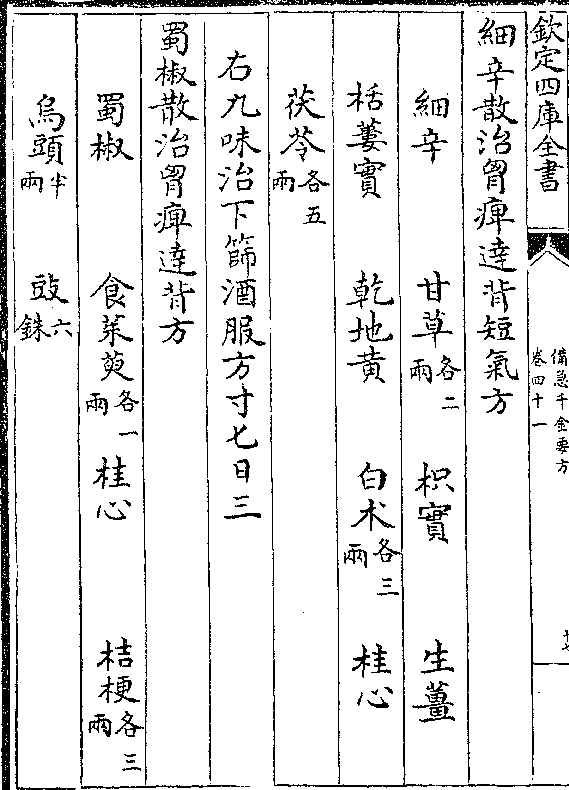 欽定四庫全書
備急千金要方
卷四十一
細辛散治胷痺達背短氣方
細辛 甘草各二兩 枳實 生薑
栝蔞實 乾地黄 白术各三兩 桂心
茯苓各五兩
右九味治下篩酒服方寸七日三
蜀椒散治胷痺達背方
蜀椒 食茱萸各一兩 桂心 桔梗各三兩
烏頭半兩 豉六銖